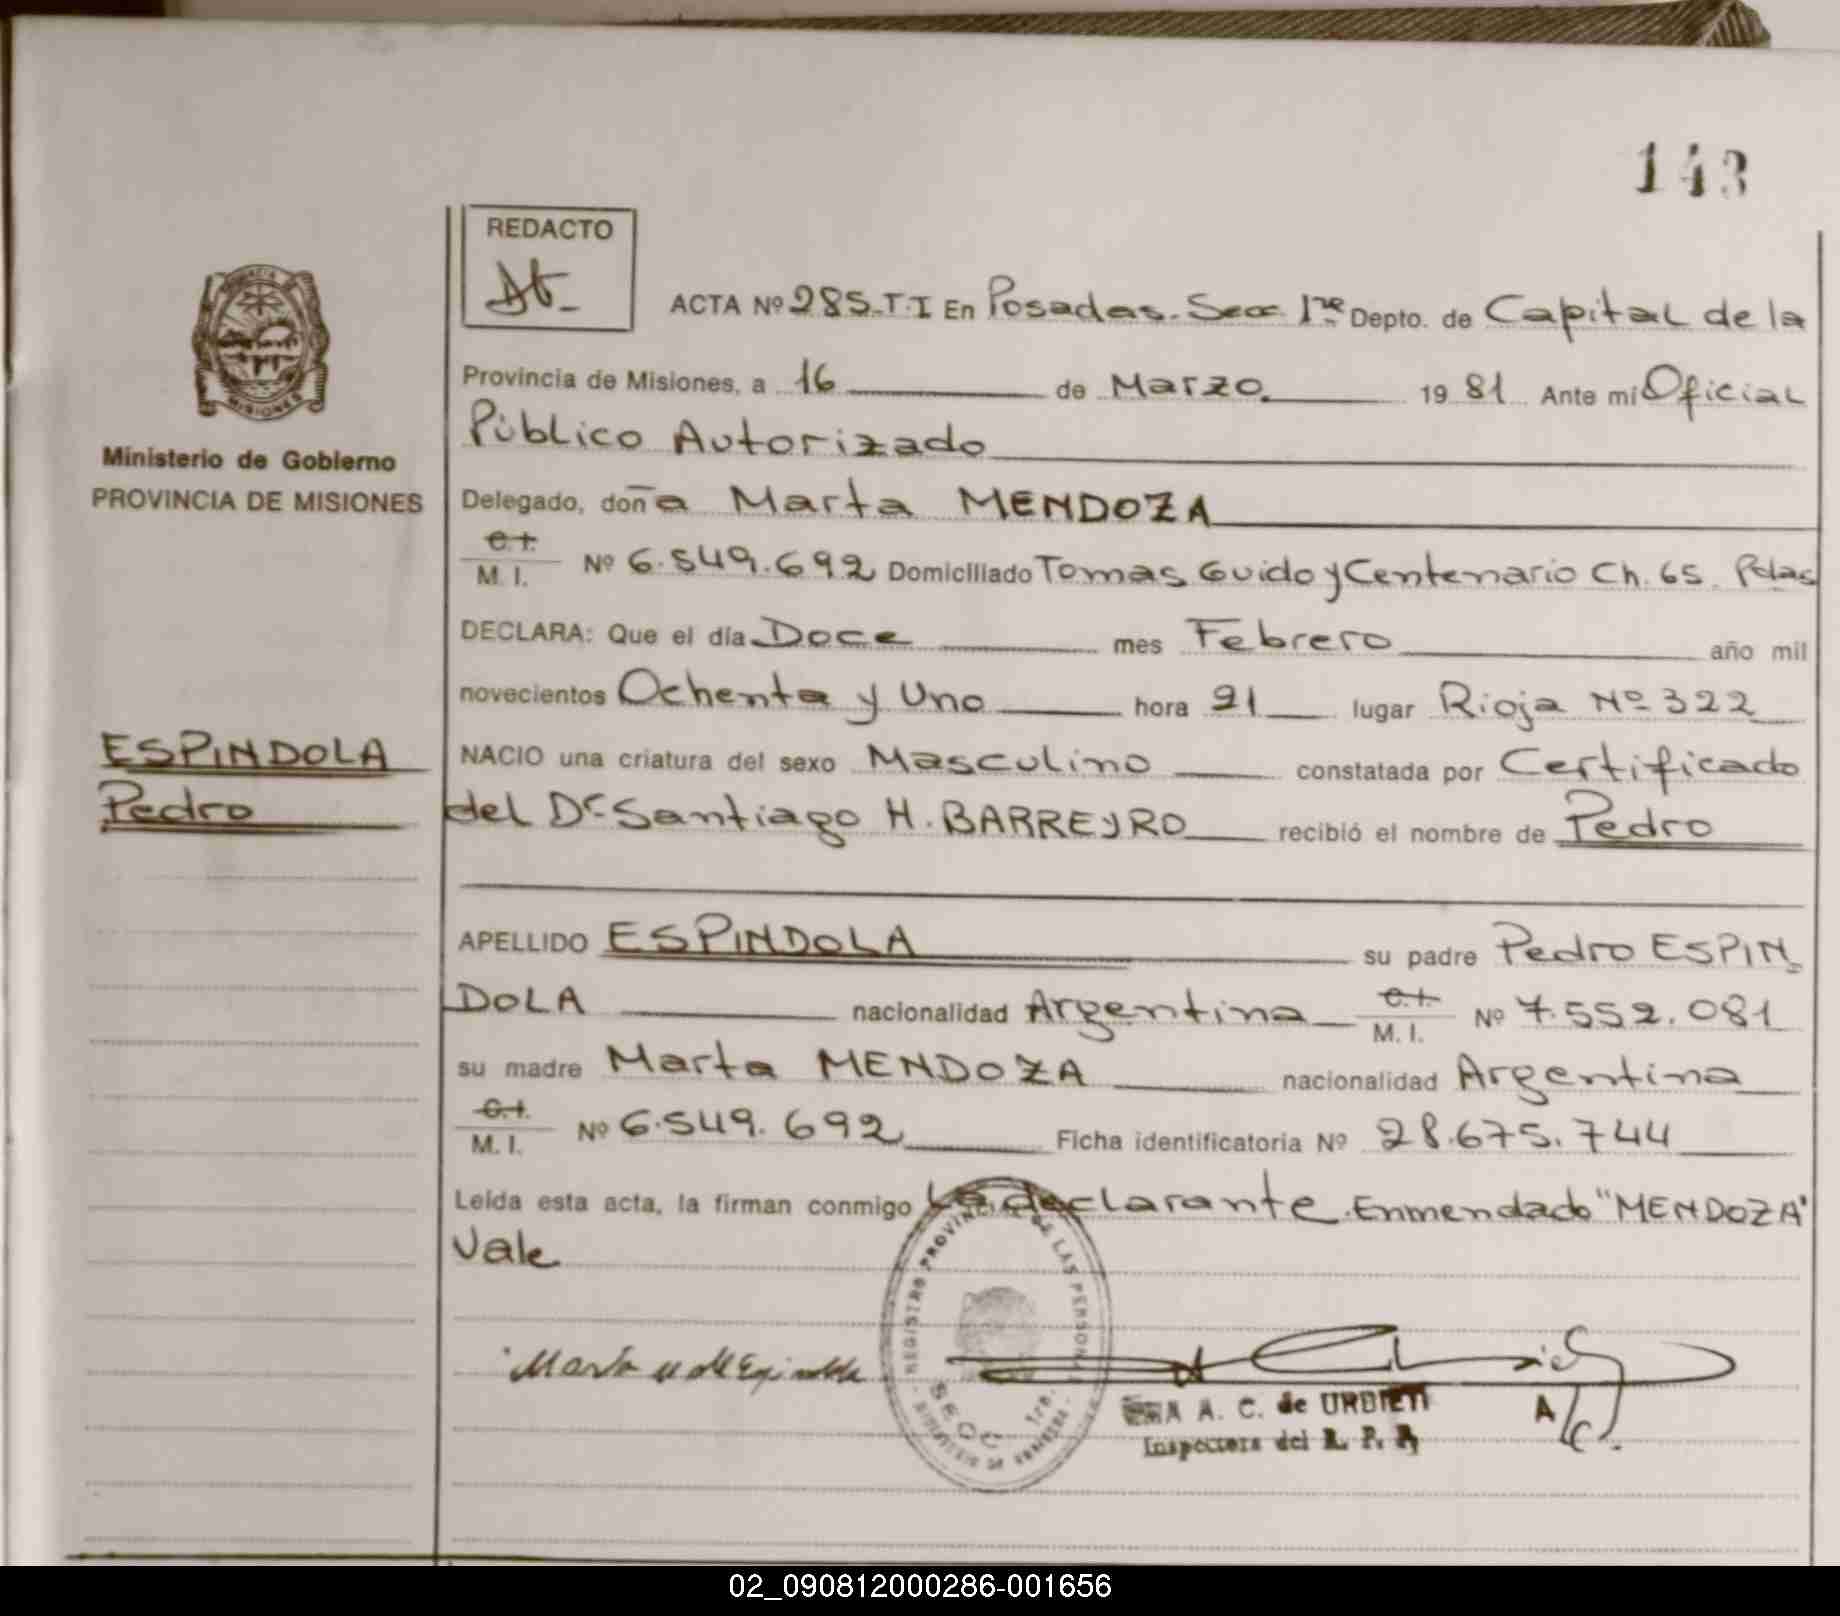 143
REDACTO
ACTA Nº 285.T.I En Posadas. Secc 1ra Depto. de Capital de la
Provincia de Misiones, a 16 de Marzo 19 81 Ante mí Oficial
Público Autorizado
MISIONES
Ministerio de Gobierno
PROVINCIA DE MISIONES
Delegado, doña Marta MENDOZA
C.I.
M. I. Nº 6.549.692 Domiciliado Tomas Guido y Centenario Ch. 65. Pdas
DECLARA: Que el día Doce mes Febrero año mil
novecientos Ochenta y Uno hora 21 lugar Rioja Nº 322
ESPINDOLA
Pedro
NACIO una criatura del sexo Masculino constatada por Certificado
del Dr Santiago H. BARREYRO recibió el nombre de Pedro
APELLIDO ESPINDOLA su padre Pedro ESPIN
DOLA nacionalidad Argentina C.I. M. I. Nº 7.552.081
su madre Marta MENDOZA nacionalidad Argentina
C.I.
M. I. Nº 6.549.692 Ficha identificatoria Nº 28.675.744
Leída esta acta, la firman conmigo La declarante. Enmendado "MENDOZA"
Vale
REGISTRO PROVINCIAL DE LAS PERSONAS
SECC 1ra.
A. C. de URBIETA
Inspectora del R. P. P.
02_090812000286-001656